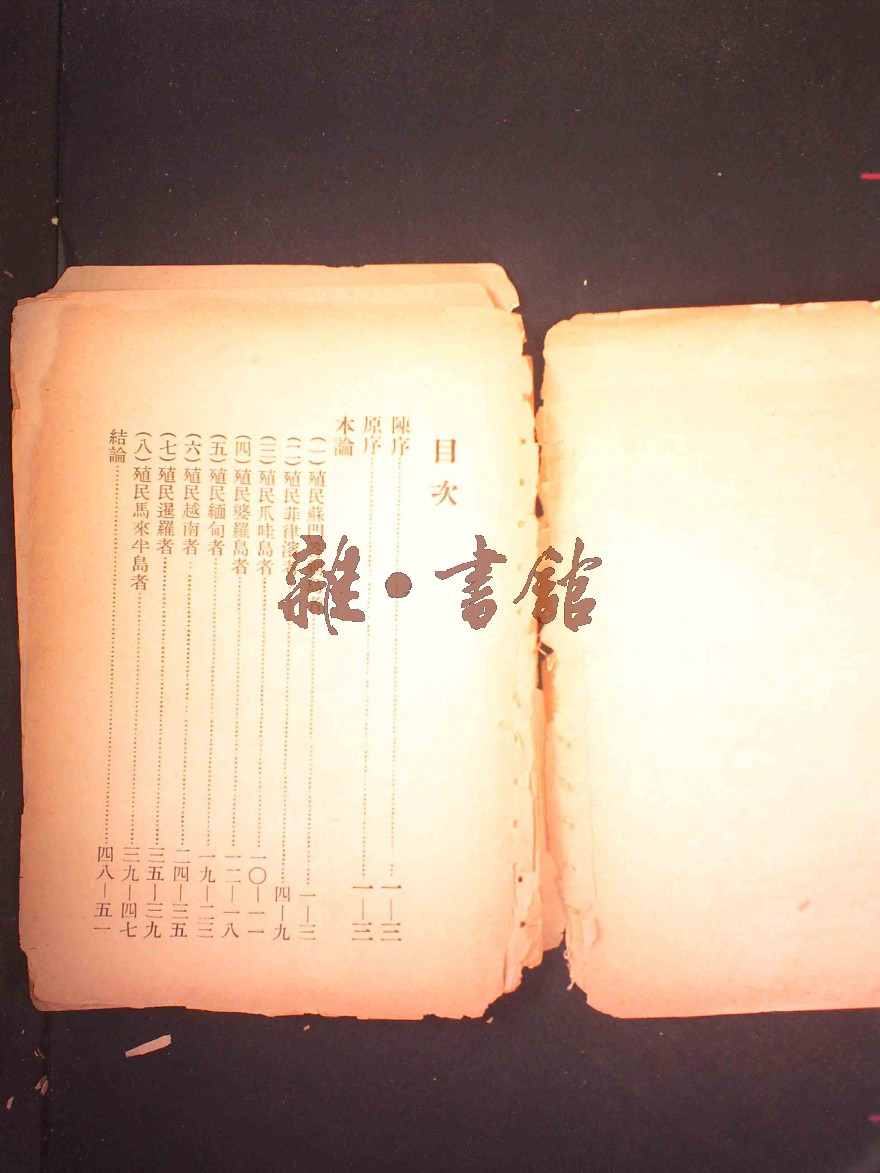 目次
陳序……一—三
原序……一—三
本論
(一)殖民蘇門……者……一—三
(二)殖民菲律濱者……四—九
(三)殖民爪哇島者……一〇—一一
(四)殖民婆羅島者……一二—一八
(五)殖民緬甸者……一九—二三
(六)殖民越南者……二四—三五
(七)殖民暹羅者……三五—三九
(八)殖民馬來半島者……三九—四七
結論……四八—五一
雜·書館